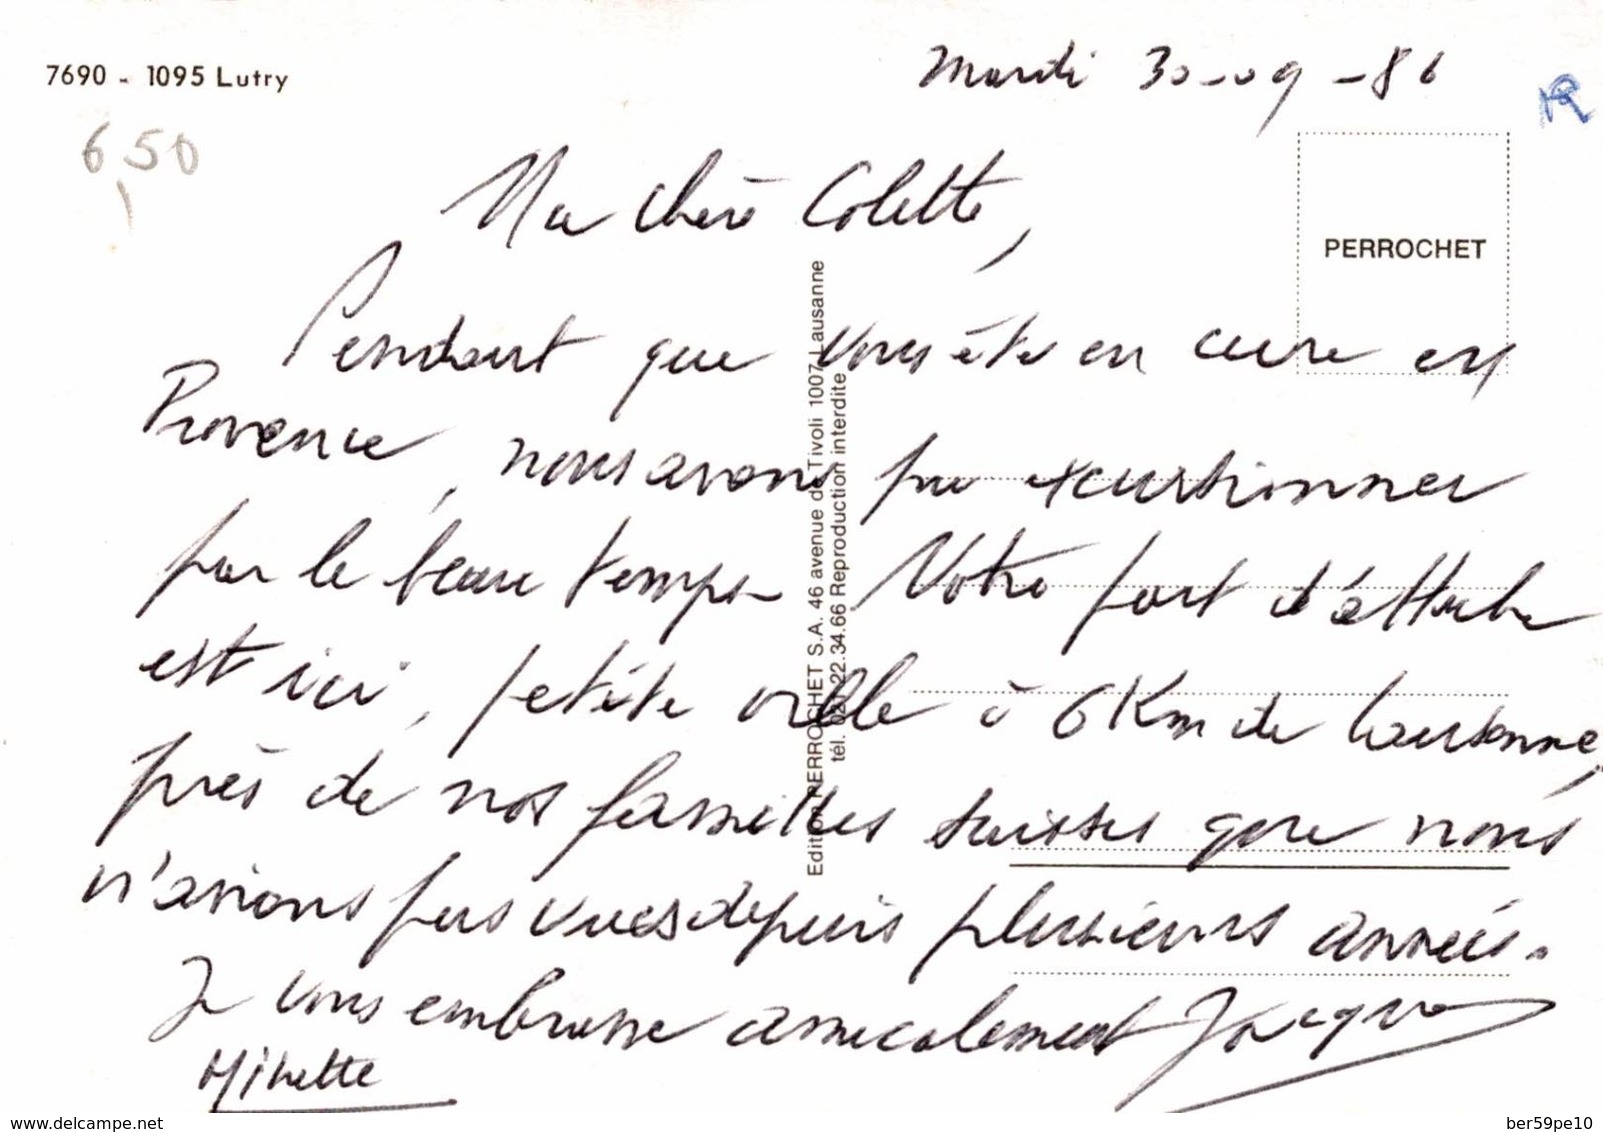 7690 - 1095 Lutry
Mardi 30-09-86
6,50
PERROCHET
Ma chère Colette,
Pendant que vous ête en cure en
Provence, nous avons pu excursionner
par le beau temps. Votre port d'attache
est ici, petite ville à 6 Km de Lausanne,
près de nos familles suisses que nous
n'avions pas vues depuis plusieurs années.
Je vous embrasse amicalement Jacques
Minette
Edition PERROCHET S.A. 46 avenue de Tivoli 1007 Lausanne
tél. 22.34.66 Reproduction interdite
www.delcampe.net
ber59pe10